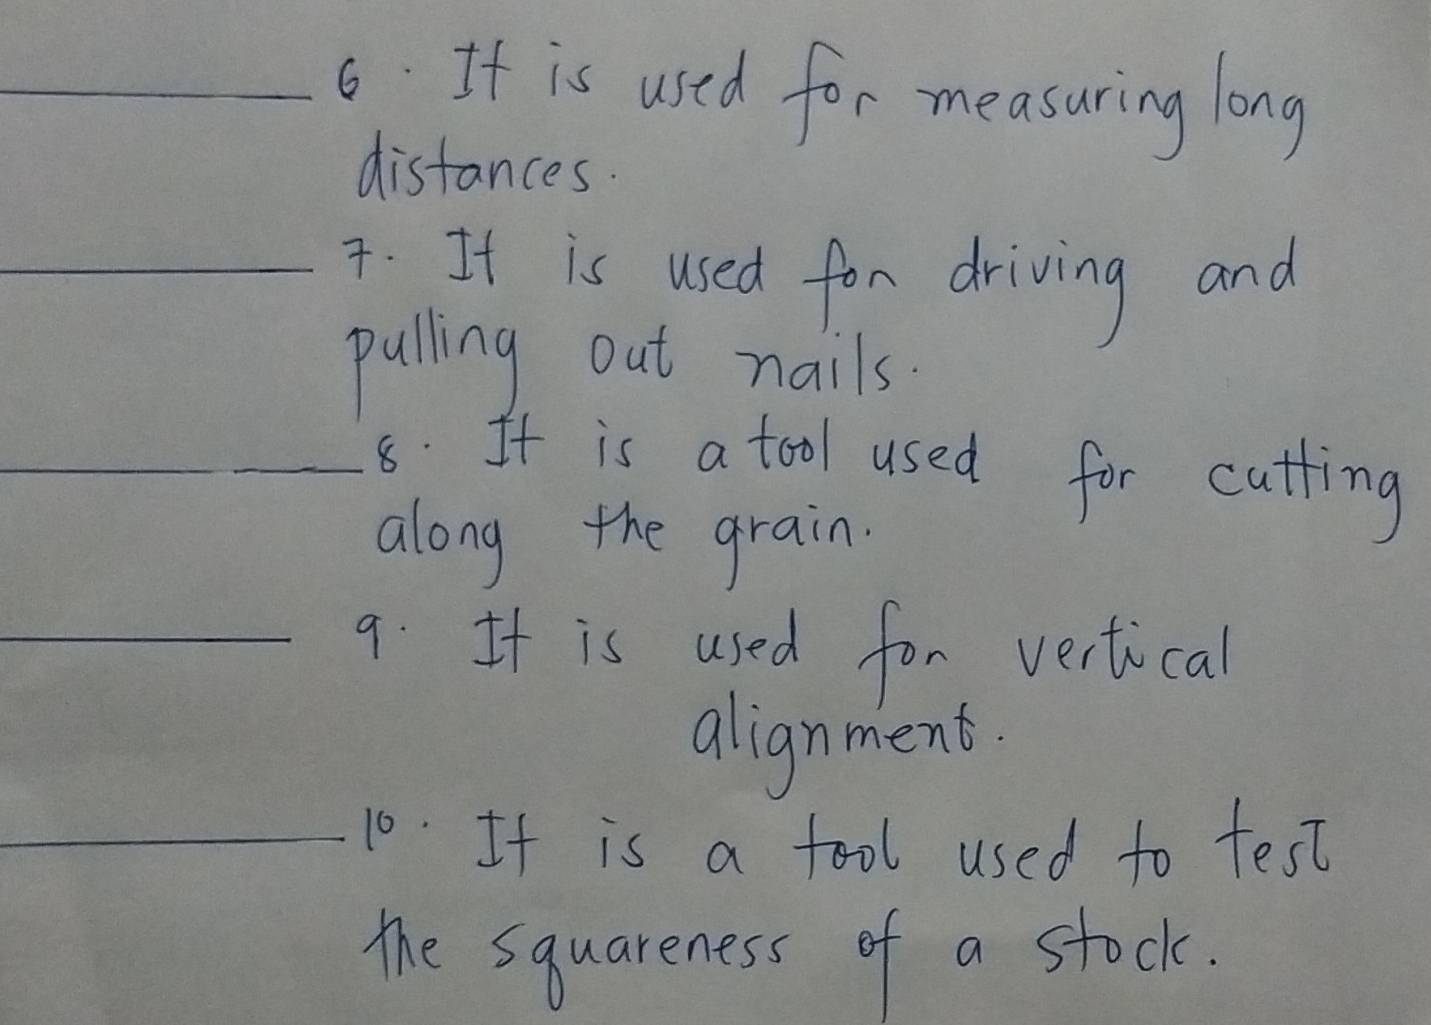 6. It is used for measuring long
distances.
7. It is used for driving and
pulling out nails.
8. It is a tool used for cutting
along the grain.
9. It is used for vertical
alignment.
10. It is a tool used to test
the squareness of a stock.